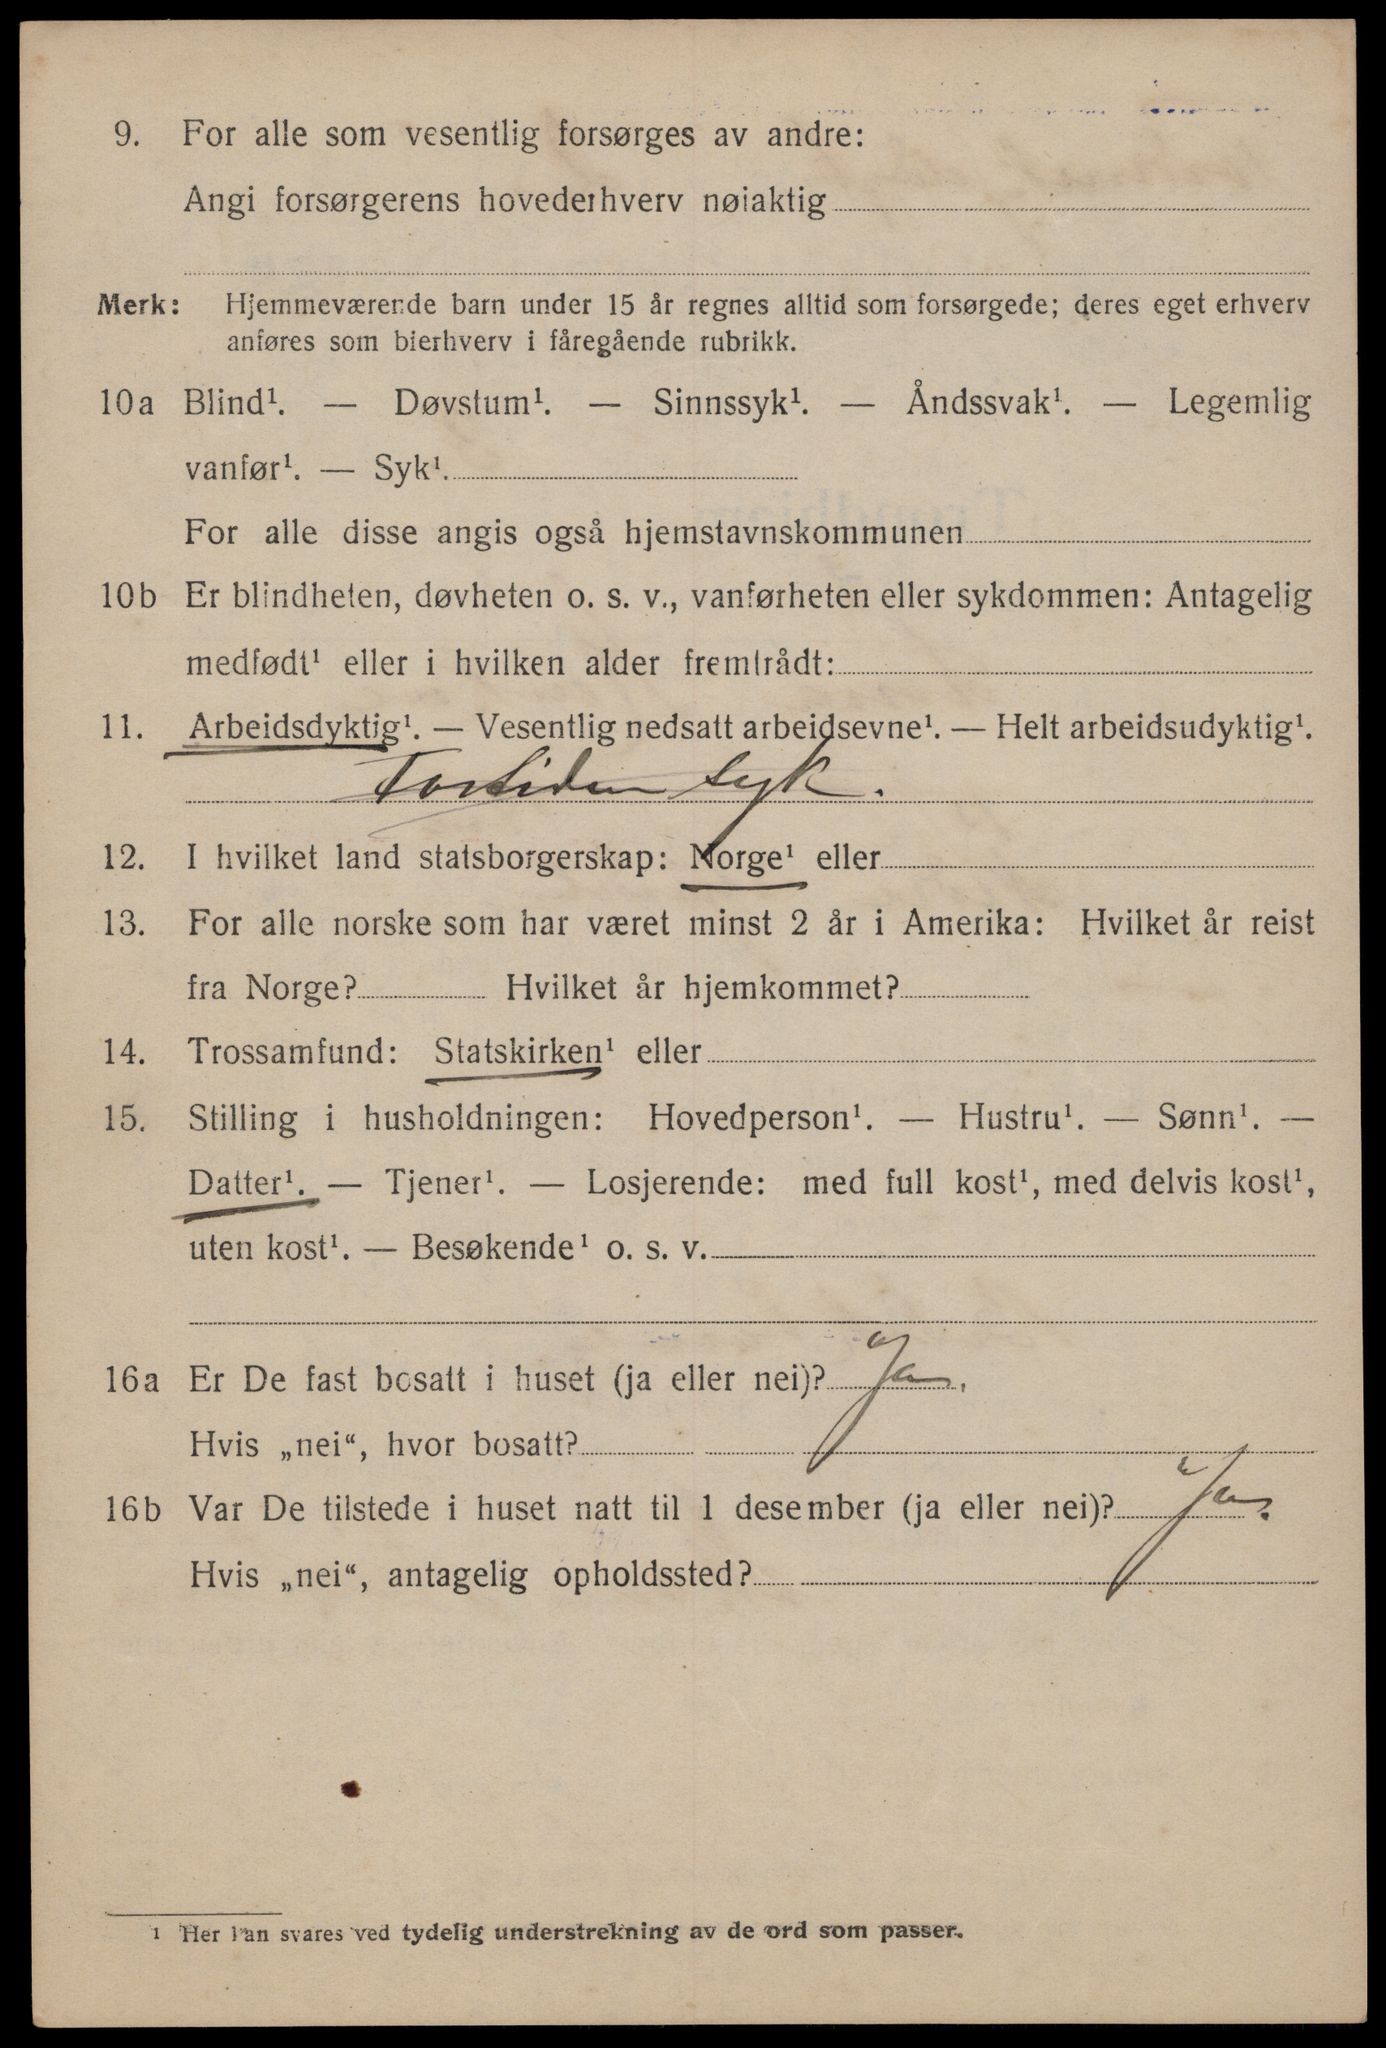 9. For alle som vesentlig forsørges av andre:
Angi forsørgerens hovederhverv nøiaktig
Merk: Hjemmeværende barn under 15 år regnes alltid som forsørgede; deres eget erhverv
anføres som bierhverv i fåregående rubrikk.
10a Blind¹. — Døvstum¹. — Sinnssyk¹. — Åndssvak¹. — Legemlig
vanfør¹. — Syk¹.
For alle disse angis også hjemstavnskommunen
10b Er blindheten, døvheten o. s. v., vanførheten eller sykdommen: Antagelig
medfødt¹ eller i hvilken alder fremtrådt:
11. Arbeidsdyktig¹. — Vesentlig nedsatt arbeidsevne¹. — Helt arbeidsudyktig¹.
For tiden syk.
12. I hvilket land statsborgerskap: Norge¹ eller
13. For alle norske som har været minst 2 år i Amerika: Hvilket år reist
fra Norge? Hvilket år hjemkommet?
14. Trossamfund: Statskirken¹ eller
15. Stilling i husholdningen: Hovedperson¹. — Hustru¹. — Sønn¹. —
Datter¹. — Tjener¹. — Losjerende: med full kost¹, med delvis kost¹,
uten kost¹. — Besøkende¹ o. s. v.
16a Er De fast bosatt i huset (ja eller nei)? Ja.
Hvis „nei“, hvor bosatt?
16b Var De tilstede i huset natt til 1 desember (ja eller nei)? Ja.
Hvis „nei“, antagelig opholdssted?
1 Her kan svares ved tydelig understrekning av de ord som passer.